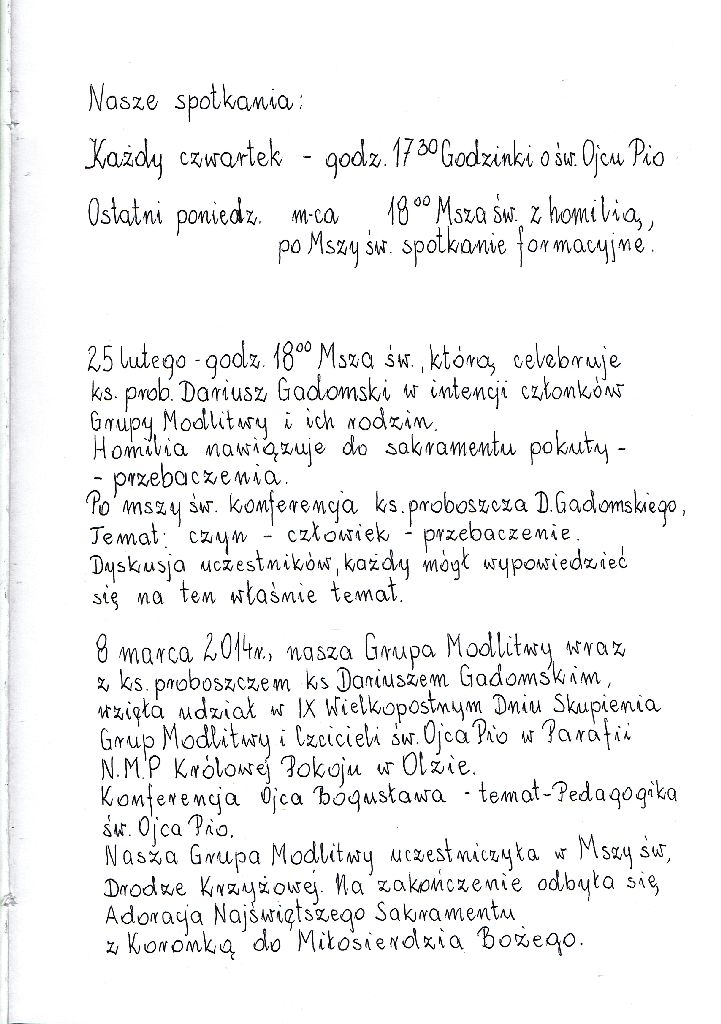 Nasze spotkania:
Każdy czwartek - godz. 17³⁰ Godzinki o św. Ojcu Pio
Ostatni poniedz. m-ca 18⁰⁰ Msza św. z homilią,
po Mszy św. spotkanie formacyjne.
25 lutego - godz. 18⁰⁰ Msza św., którą celebruje
ks. prob. Dariusz Gadomski w intencji członków
Grupy Modlitwy i ich rodzin.
Homilia nawiązuje do sakramentu pokuty -
- przebaczenia.
Po mszy św. konferencja ks. proboszcza D. Gadomskiego,
Temat: czyn - człowiek - przebaczenie.
Dyskusja uczestników, każdy mógł wypowiedzieć
się na ten właśnie temat.
8 marca 2014r., nasza Grupa Modlitwy wraz
z ks. proboszczem ks Dariuszem Gadomskim,
wzięła udział w IX Wielkopostnym Dniu Skupienia
Grup Modlitwy i Czcicieli św. Ojca Pio w Parafii
N.M.P Królowej Pokoju w Olzie.
Konferencja Ojca Bogusława - temat - Pedagogika
św. Ojca Pio.
Nasza Grupa Modlitwy uczestniczyła w Mszy św,
Drodze Krzyżowej. Na zakończenie odbyła się
Adoracja Najświętszego Sakramentu
z Koronką do Miłosierdzia Bożego.